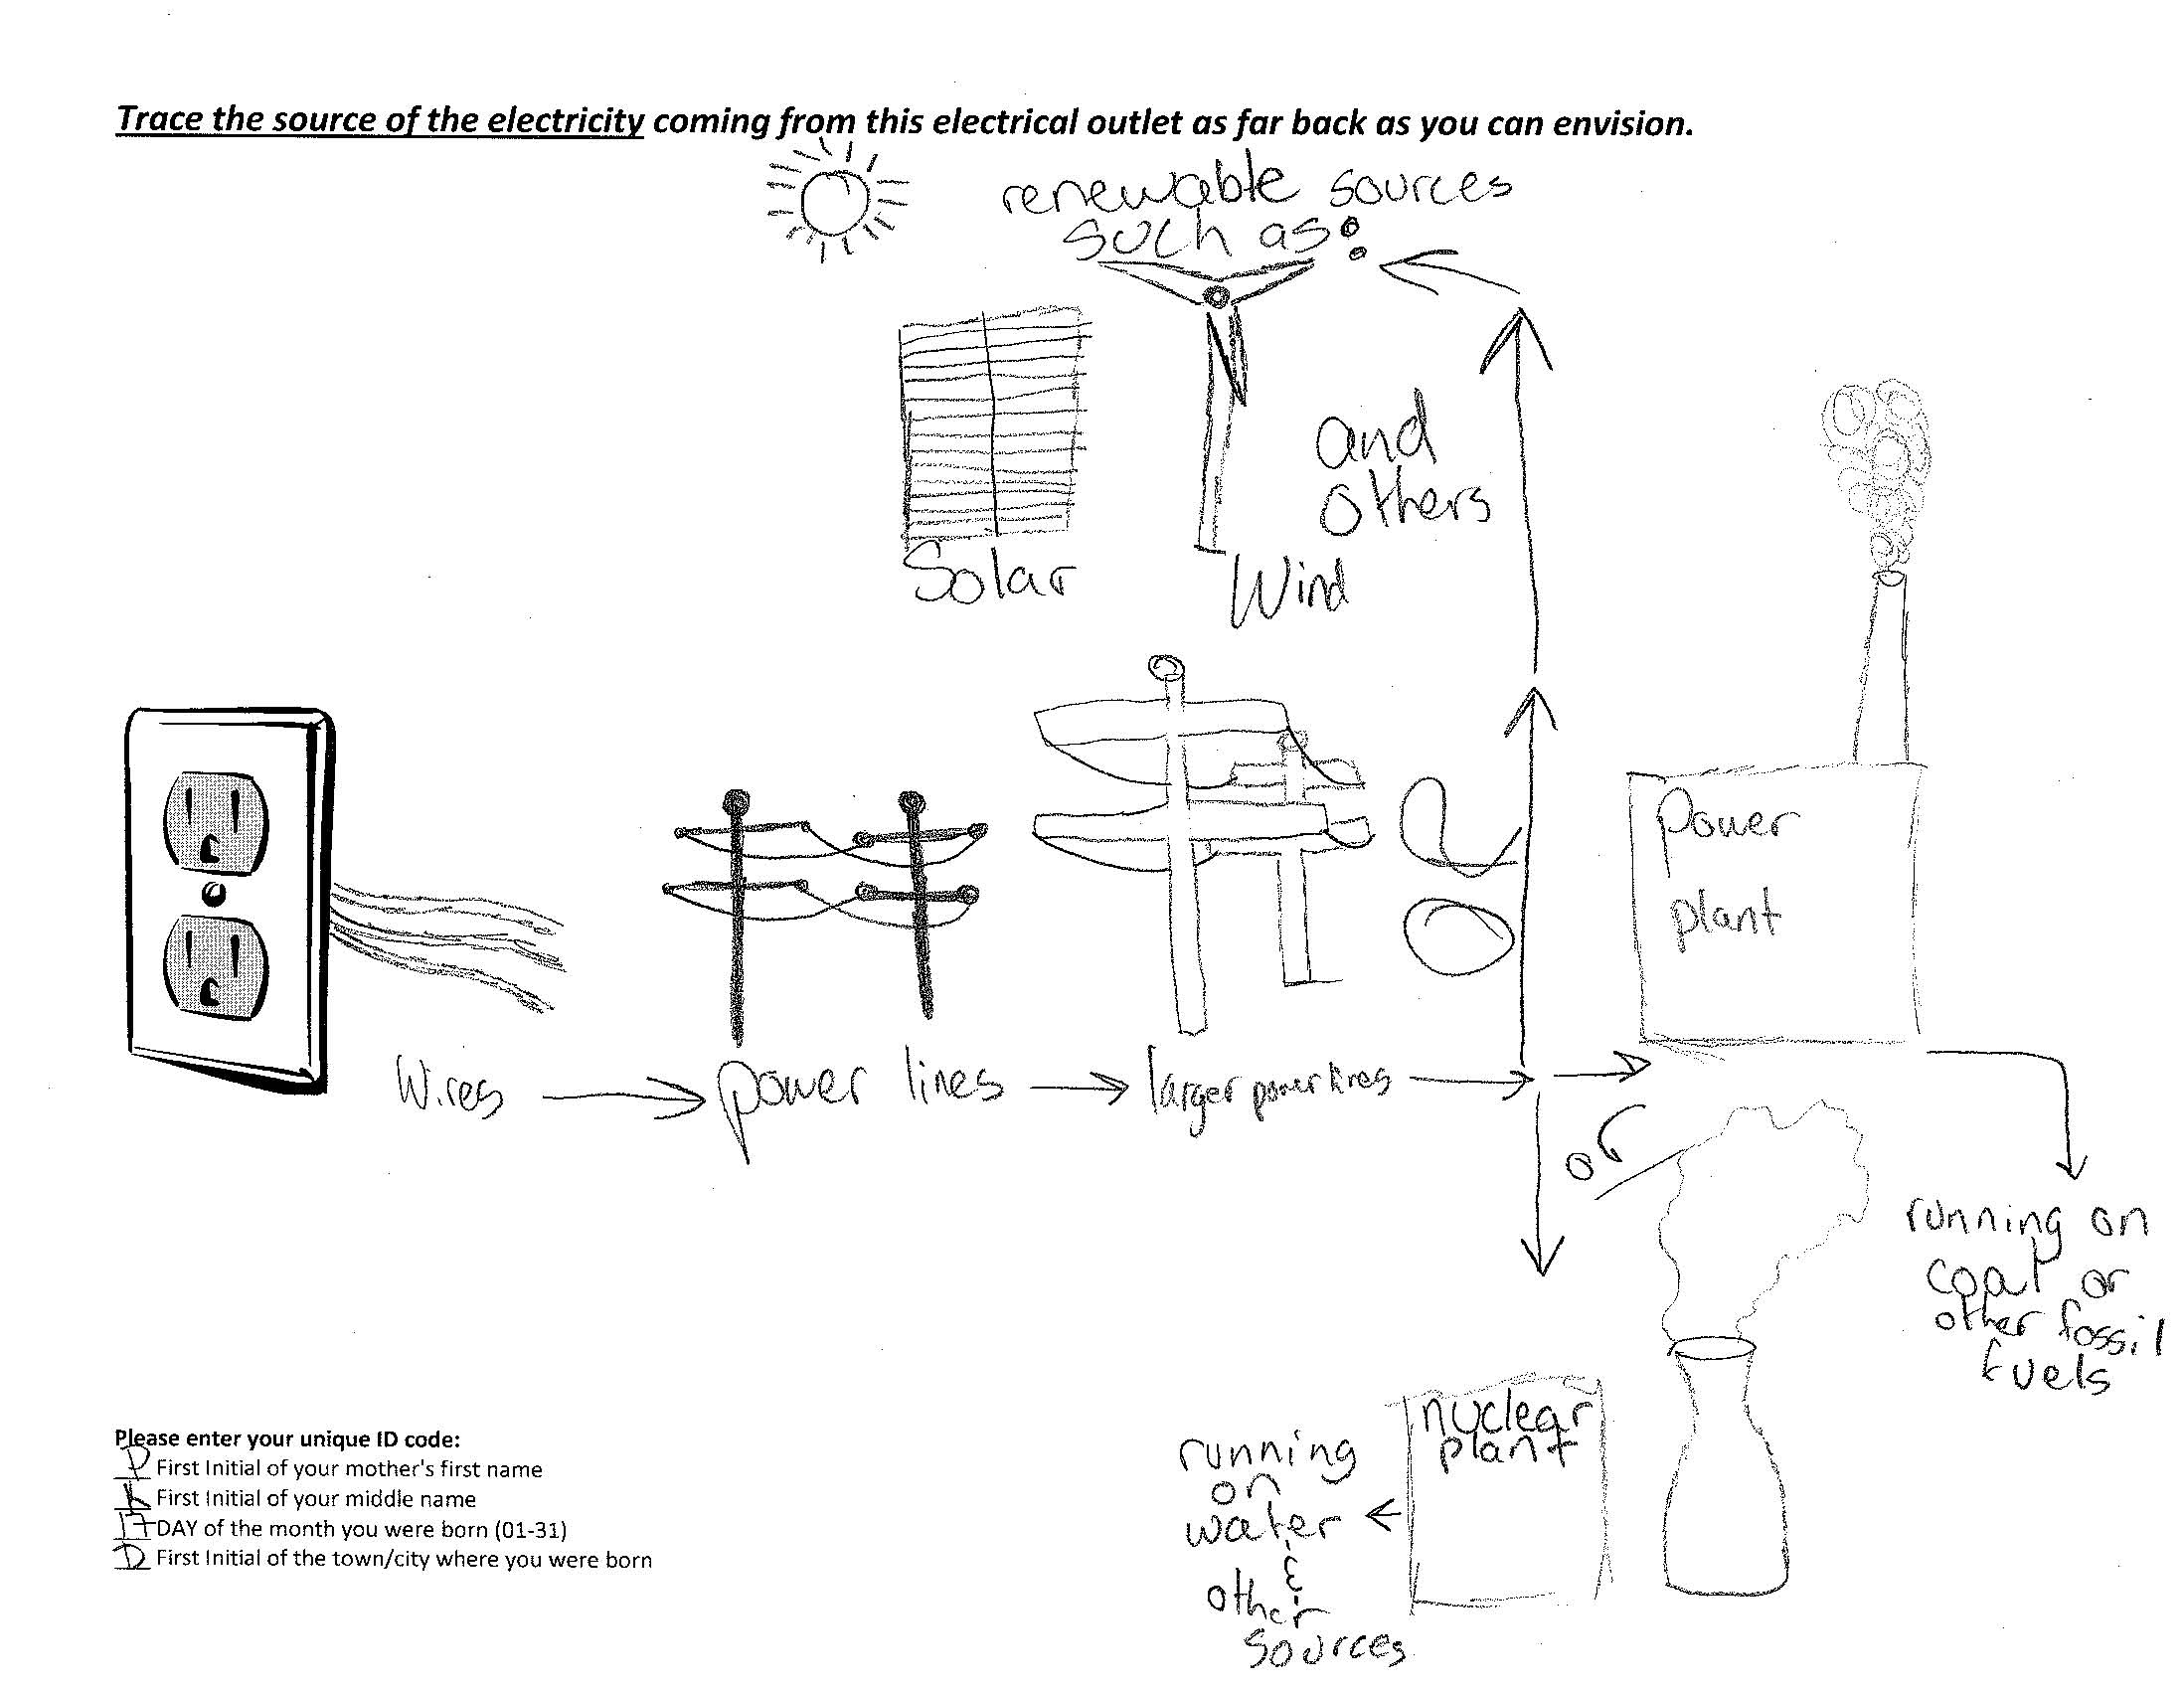 Trace the source of the electricity coming from this electrical outlet as far back as you can envision.
renewable sources
such as:
and
others
Solar
Wind
Power
plant
Wires
power lines
larger power lines
or
running on
coal or
other fossil
fuels
nuclear
plant
running
on
water
&
other
sources
Please enter your unique ID code:
P First Initial of your mother's first name
K First Initial of your middle name
17 DAY of the month you were born (01-31)
D First Initial of the town/city where you were born